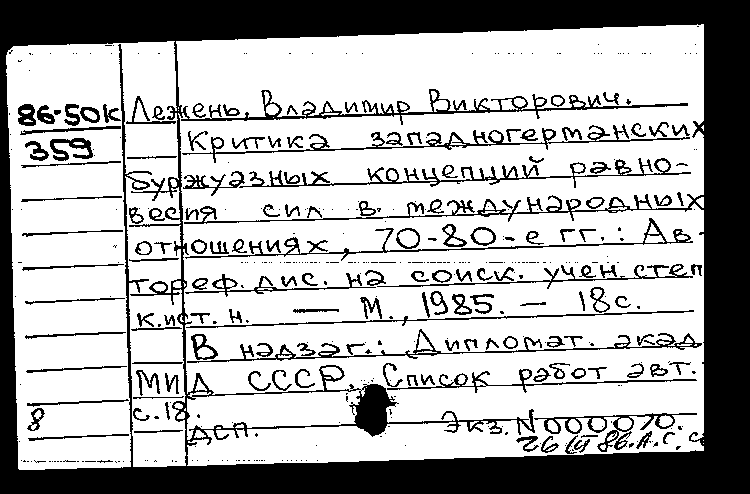 86-50к Лежень, Владимир Викторович.
359 Критика западногерманских
буржуазных концепций равно-
весия сил в международных
отношениях, 70-80-е гг.: Ав-
тореф. дис. на соиск. учен. степ
к.ист. н. — М., 1985. — 18с.
В надзаг.: Дипломат. акад
МИД СССР. Список работ авт.:
8 с.18.
ДСП. Экз. N000070.
26 III 86. А.С.